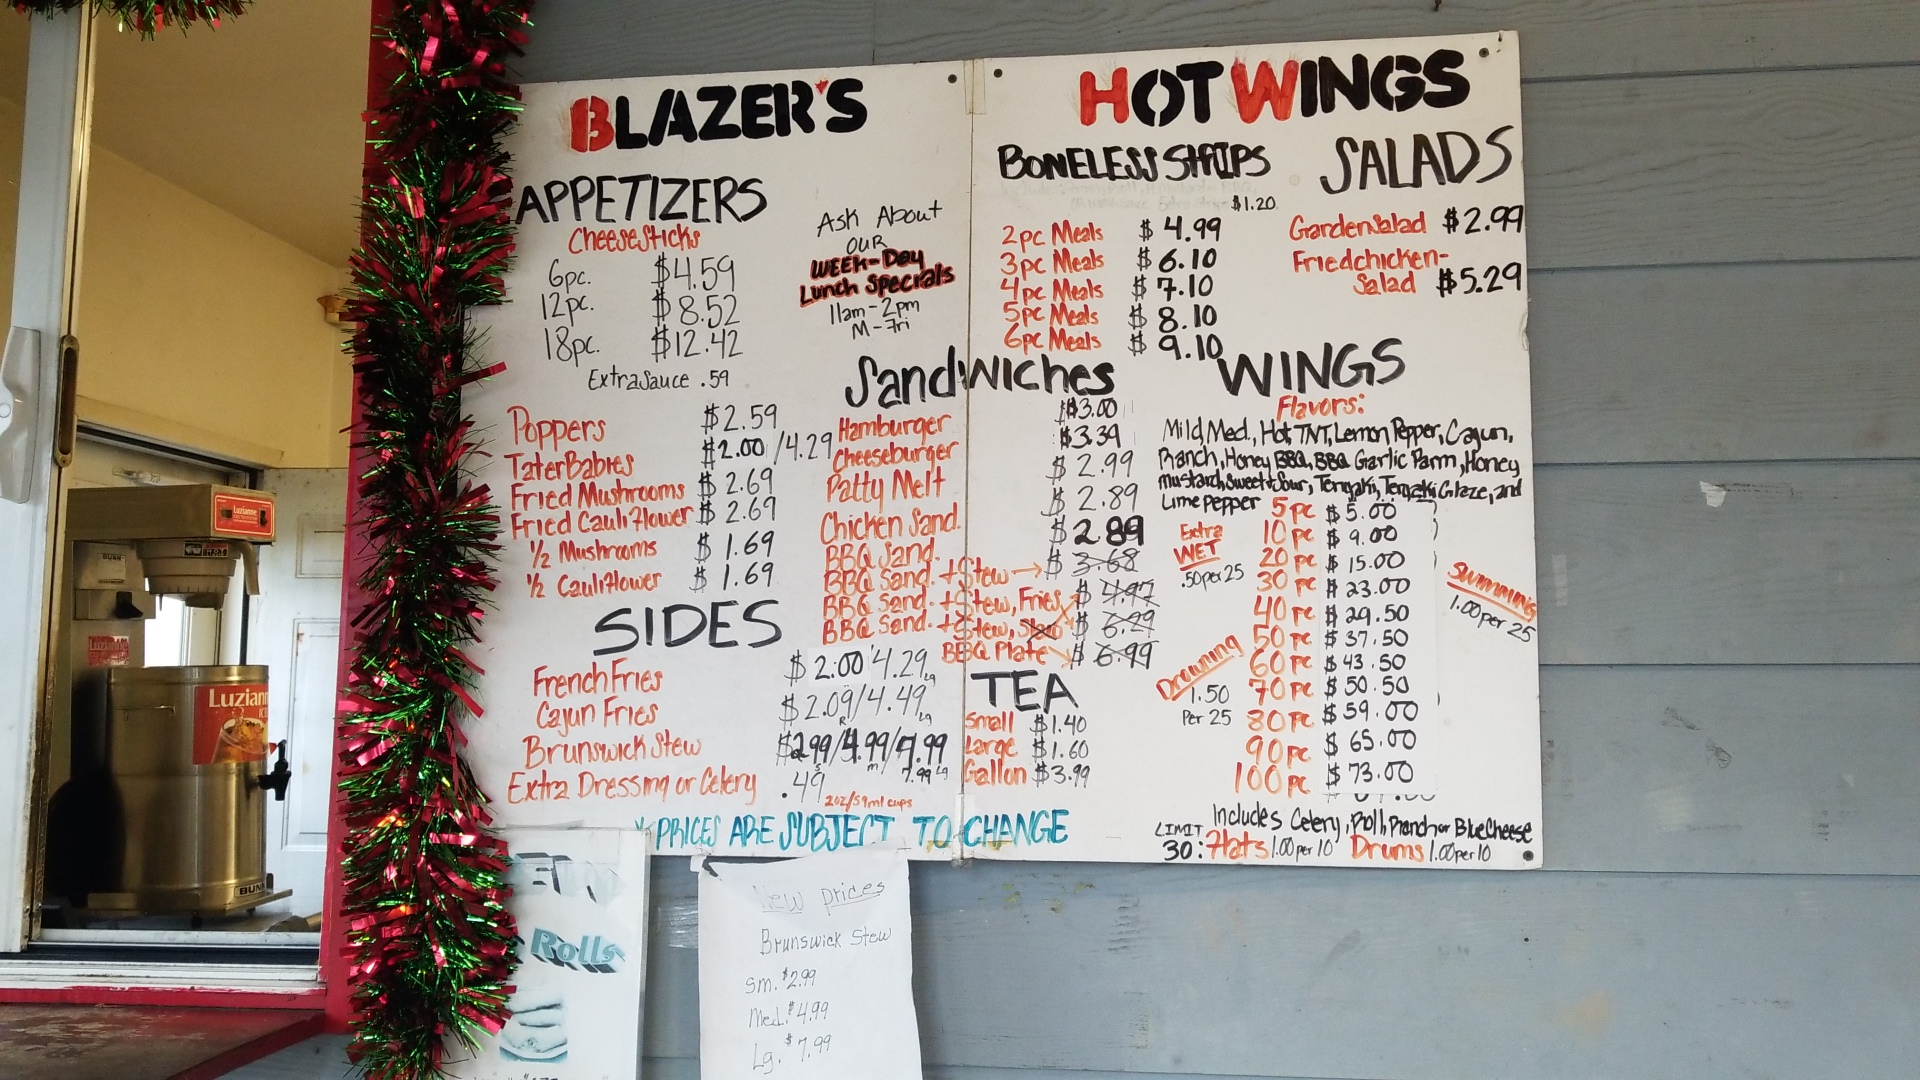 BLAZER'S
APPETIZERS
CheeseSticks
6pc. $4.59
12pc. $8.52
18pc. $12.42
Extra Sauce .59
Ask About
our
WEEK-Day
Lunch Specials
11am-2pm
M-Fri
Poppers $2.59
TaterBabies $2.00/4.29
Fried Mushrooms $2.69
Fried Cauliflower $2.69
1/2 Mushrooms $1.69
1/2 Cauliflower $1.69
SIDES
French Fries $2.00/4.29 Lg
Cajun Fries $2.09/4.49 R Lg
Brunswick Stew $2.99/4.99/7.99 S m 7.99 Lg
Extra Dressing or Celery .49
2oz/59ml cups
*PRICES ARE SUBJECT TO CHANGE
HOT WINGS
BONELESS STRIPS
$1.20
2pc Meals $4.99
3pc Meals $6.10
4pc Meals $7.10
5pc Meals $8.10
6pc Meals $9.10
SALADS
Garden Salad $2.99
Fried chicken-
Salad $5.29
Sandwiches
Hamburger $3.00
Cheeseburger $3.39
Patty Melt $2.99
Chicken Sand. $2.89
BBQ Sand. $2.89
BBQ Sand. + Stew $3.68
BBQ Sand. + Stew, Fries $4.97
BBQ Sand. + Stew, Slaw $6.29
BBQ Plate $6.99
TEA
Small $1.40
Large $1.60
Gallon $3.99
WINGS
Flavors:
Mild, Med., Hot, TNT, Lemon Pepper, Cajun,
Ranch, Honey BBQ, BBQ Garlic Parm, Honey
mustard, Sweet & Sour, Teriyaki, Teriyaki Glaze, and
Lime Pepper
5 pc $5.00
10 pc $9.00
20 pc $15.00
30 pc $23.00
40 pc $29.50
50 pc $37.50
60 pc $43.50
70 pc $50.50
80 pc $59.00
90 pc $65.00
100 pc $73.00
Extra
WET
.50 per 25
Drowning
1.50
Per 25
Swimming
1.00 per 25
Includes Celery, Roll, Ranch or Blue Cheese
LIMIT
30: Flats 1.00 per 10 Drums 1.00 per 10
Rolls
New prices
Brunswick Stew
Sm. $2.99
Med. $4.99
Lg. $7.99
Luzianne
BUNN
Luzianne
BUNN